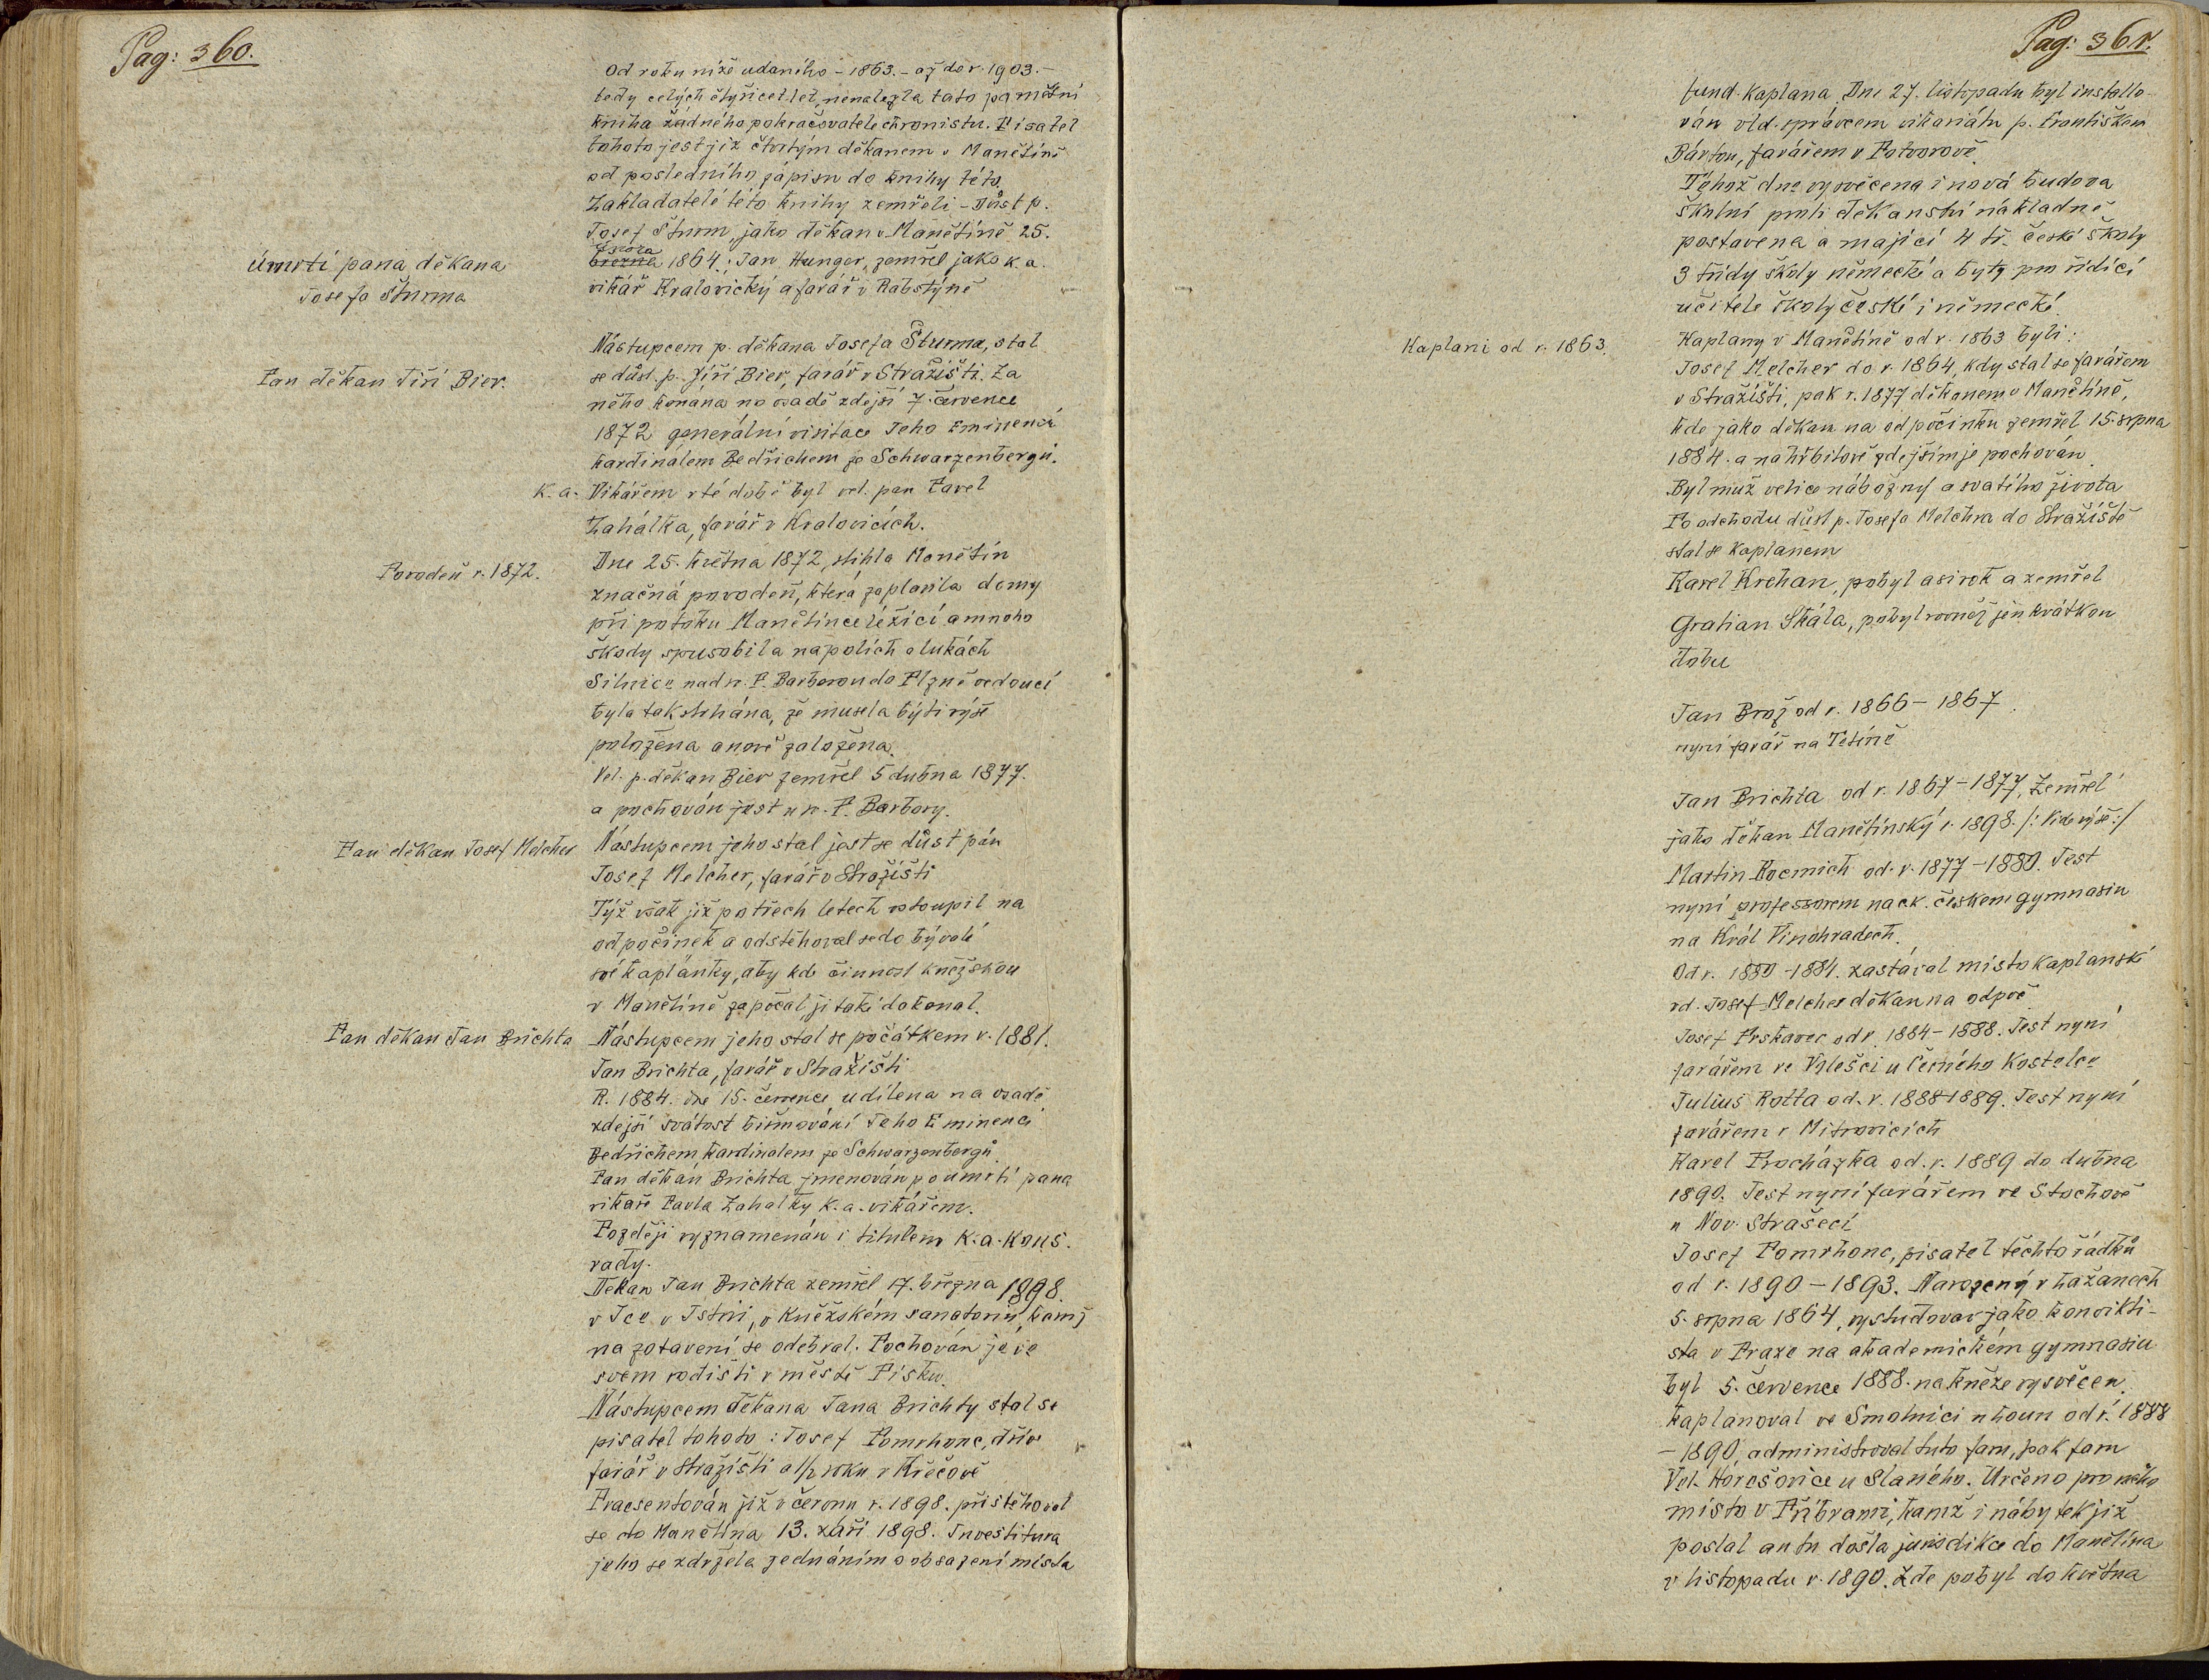 Pag: 360.
Od roku níže udaného - 1863. - až do r. 1903. -
tedy celých čtyřicet let, nenalezla tato pamětní
kniha žádného pokračovatele chronistu. Pisatel
tohoto jest již čtvrtým děkanem v Manětíně
od posledního zápisu do knihy této.
Zakladatelé této knihy zemřeli - Důst p.
Josef Šturm, jako děkan v Manětíně 25.
února
března 1864.; Jan Hunger, zemřel jako k. a.
vikář Kralovický a farář v Rabstýně
Úmrtí pana děkana
Josefa Šturma
Nástupcem p. děkana Josefa Šturma, stal
se důst. p. Jíří Bier, farář v Stražišti. Za
Pan děkan Jiří Bier.
něho konána na osadě zdejší 7. července
1872 generální visitace Jeho Eminencí
kardinálem Bedřichem ze Schwarzenbergů.
K. a. Vikářem v té době byl vel. pan Pavel
Zahálka, farář v Kralovicích.
Povodeň r. 1872.
Dne 25. května 1872, stihla Manětín
značná povodeň, která zaplavila domy
při potoku Manětínce ležící a mnoho
škody spusobila na polích a lukách
Silnice nad n. P. Barborou do Plzně vedoucí
byla tak strhána, že musela býti výše
položena a nově založena.
Vel. p. děkan Bier zemřel 5 dubna 1877.
a pochován jest u n. P. Barbory.
Pan děkan Josef Melcher
Nástupcem jeho stal jest se důst pán
Josef Melcher, farář v Stražišti
Týž však již po třech letech vstoupil na
odpočinek a odstěhoval se do bývalé
své kaplánky, aby kde činnost kněžskou
v Manětíně započal, ji také dokonal.
Pan děkan Jan Brichta
Nástupcem jeho stal se počátkem r. 1881.
Jan Brichta, farář v Stražišti
R. 1884. dne 15. července udílena na osadě
zdejší svátost biřmování Jeho Eminencí
Bedřichem kardinálem ze Schwarzenbergů.
Pan děkan Brichta jmenován po úmrtí pana
vikáře Pavla Zahálky k. a. vikářem.
Později vyznamenán i titulem k. a. kons.
rady.
Děkan Jan Brichta zemřel 17. března 1898.
v Ice v Istrii, v kněžském sanatoriu, kamž
na zotavení se odebral. Pochován je ve
svém rodišti v městě Písku.
Nástupcem děkana Jana Brichty stal se
pisatel tohoto: Josef Pomrhonc, dřív
farář v Stražišti a 1/2 roku v Křečově
Praesentován již v červnu r. 1898. přistěhoval
se do Manětína 13. září 1898. Investitura
jeho se zdržela jednáním o obsazení místa
Pag: 361.
fund. kaplana. Dne 27. listopadu byl installo-
ván vld. správcem vikariátu p. Františkem
Bártou, farářem v Potvorově.
Téhož dne vysvěcena i nová budova
školní proti děkanství nákladně
postavena a mající 4 tř. české školy
3 třídy školy německé a byty pro řídící
učitele školy české i německé.
Kaplani od r. 1863.
Kaplany v Manětíně od r. 1863 byli:
Josef Melcher do r. 1864, kdy stal se farářem
v Stražišti, pak r. 1877 děkanem v Manětíně,
kde jako děkan na odpočinku zemřel 15. srpna
1884. a na hřbitově zdejším je pochován.
Byl muž velice nábožný a svatého života
Po odchodu důst p. Josefa Melchra do Stražiště
stal se kaplanem
Karel Krchan, pobyl asi rok a zemřel
Gratian Skála, pobyl rovněž jen krátkou
dobu
Jan Brož od r. 1866 - 1867.
nyní farář na Tetíně
Jan Brichta od r. 1867 - 1877, Zemřel
jako děkan Manětínský r. 1898. /: Vide výše :/
Martin Kocmich od. r. 1877 - 1880. Jest
nyní professorem na c k. českem gymnasiu
na Král Vinohradech.
Od r. 1880 - 1884. zastával místo kaplanské
vd. Josef Melcher děkan na odpoč
Josef Prskavec od r. 1884 - 1888. Jest nyní
farářem ve Vyležci u Černého Kostelce
Julius Rotta od. r. 1888 1889. Jest nyní
farářem v Mitrovicích
Karel Procházka od. r. 1889 do dubna
1890. Jest nyní farářem ve Stochově
u Nov. Strašecí
Josef Pomrhonc, pisatel těchto řádků
od r. 1890 - 1893. Narozený v Lažanech
5. srpna 1864, vystudovav jako konvikti-
sta v Praze na akademickém gymnasiu
byl 5. července 1888. na kněze vysvěcen.
kaplanoval ve Smolnici u Loun od r. 1888
- 1890, administroval tuto faru, pak faru
Vel. Horešovice u Slaného. Určeno pro něho
místo v Příbrami, kamž i nábytek již
poslal an tu došla jurisdikce do Manětína
v listopadu r. 1890. Zde pobyl do května